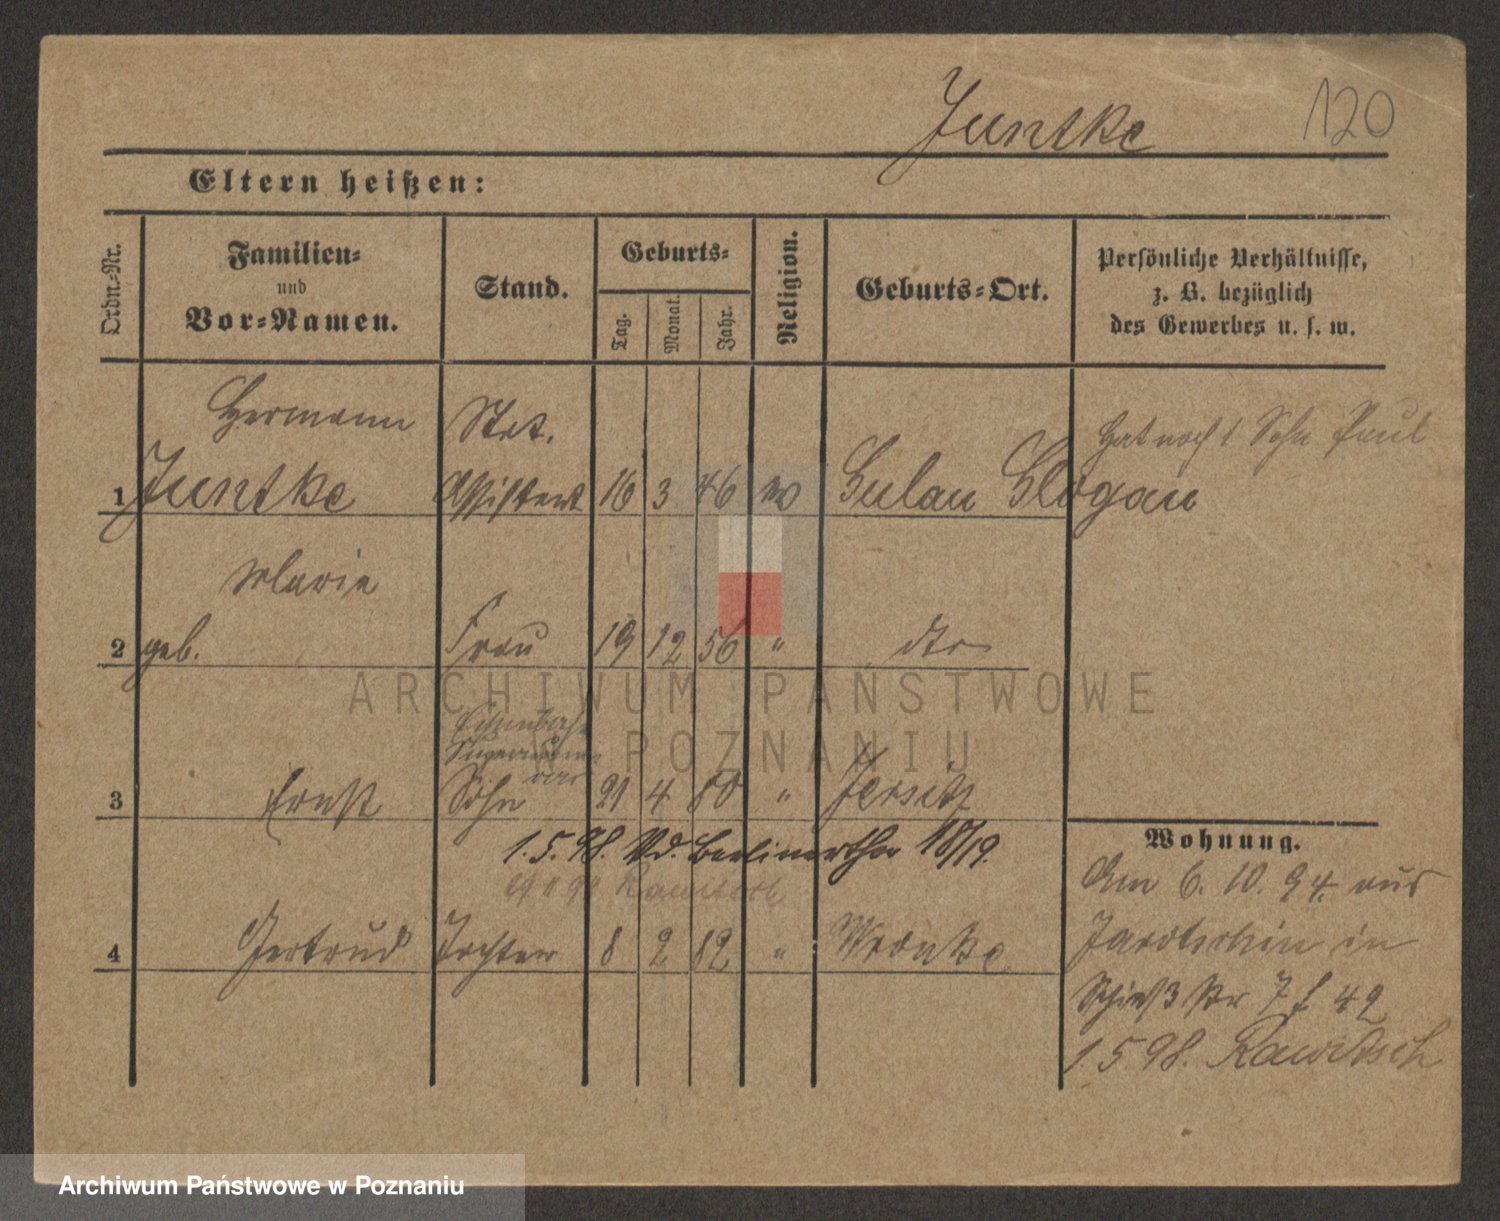 Juntke 120
Eltern heißen:
Ordn.=Nr.
Familien=
und
Vor=Namen.
Stand.
Geburts=
Tag.
Monat.
Jahr.
Religion.
Geburts=Ort.
Persönliche Verhältnisse,
z. B. bezüglich
des Gewerbes u. s. w.
Hermann Stat. Hat noch 1 Sohn Paul
1 Juntke Assistent 16 3 46 Gulau Glogau
Marie
2 geb. Frau 19 12 56 " dto
ARCHIWUM PAŃSTWOWE
W POZNANIU
Eisenbahn
3 Ernst Sohn 21 4 80 " Jersitz
1.5.98. Berlinerthor 18/19.
Rawitsch
4 Gertrud Tochter 8 2 82 " Wronke
Wohnung.
Am 6. 10. 94. aus
Jarotschin in
Schieß Str 7
1.5.98. Rawitsch
Archiwum Państwowe w Poznaniu